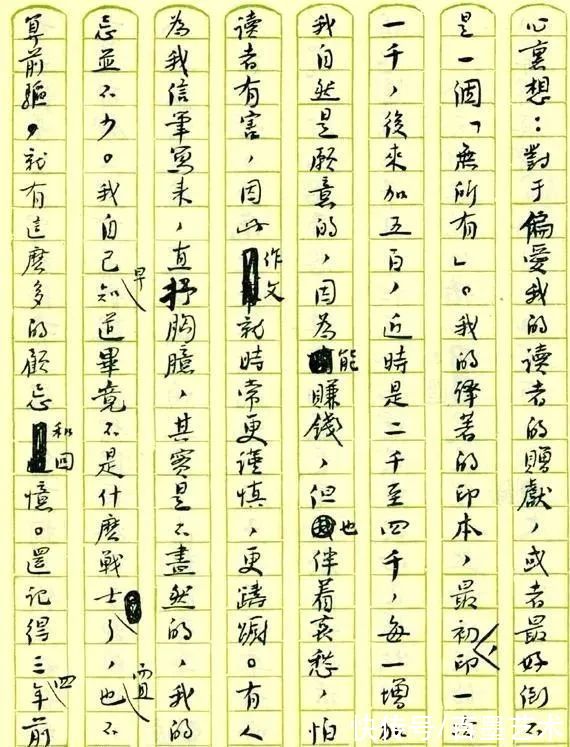 心裏想：對于偏愛我的讀者的贈獻，或者最好倒不
是一個「無所有」。我的譯著的印本，最初，印一
一千，後來加五百，近時是二千至四千，每一增加
我自然是願意的，因為能賺錢，但也伴着哀愁，怕
讀者有害，因此作文就時常更謹慎，更躊躇。有人
為我信筆寫來，直抒胸臆，其實是不盡然的，我的
忌並不少。我自己早知道畢竟不是什麽戰士了，而且也不
算前驅，就有這麽多的顧忌和回憶。還記得三四年前